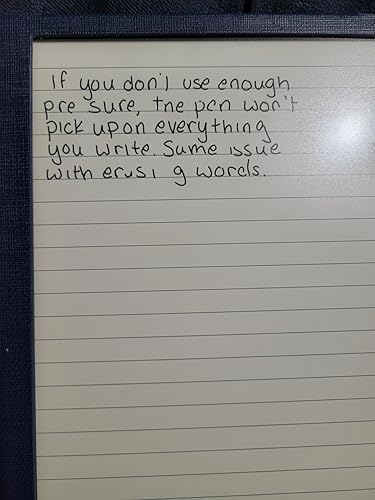 If you don't use enough
pre sure, tne pcn won't
pick up on everything
you write. Sume issue
with erusi g words.